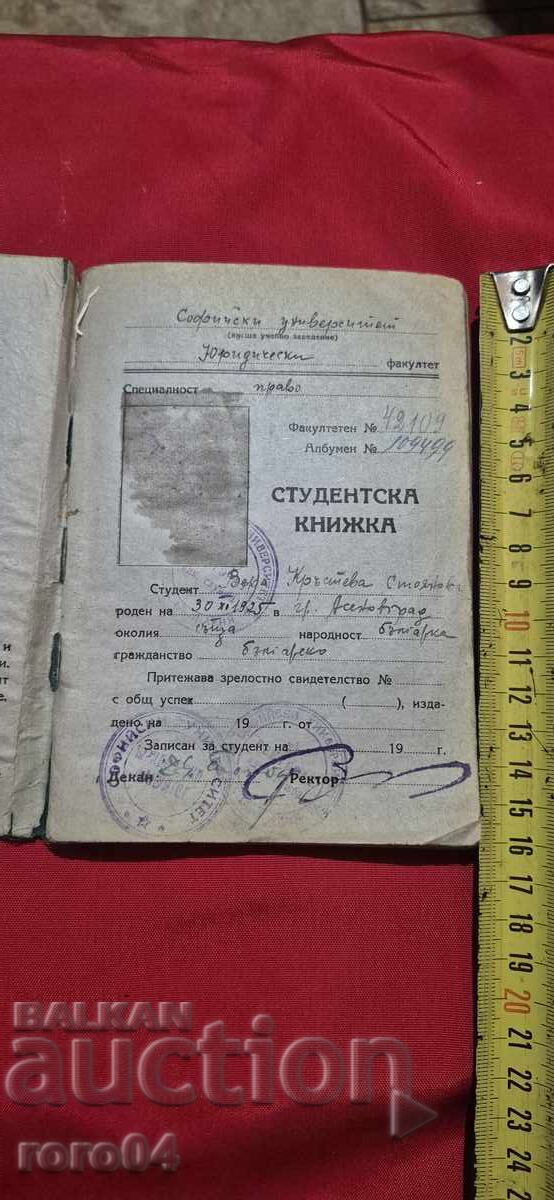 Софийски университет
(висше учебно заведение)
Юридически факултет
Специалност право
Факултетен № 42109
Албумен №
СТУДЕНТСКА
КНИЖКА
Студент Вера Кръстева Стоянова
роден на 30 XI 1925 в гр. Асеновград
околия съща народност българка
гражданство българско
Притежава зрелостно свидетелство №
с общ успех ( ), изда-
дено на 19 г. от
Записан за студент на 19 г.
Декан: Ректор:
и
и.
ят
е.
BALKAN
auction
roro04
2
3
4
5
6
7
8
9
10
11
12
13
14
15
16
17
18
19
20
21
22
23
24